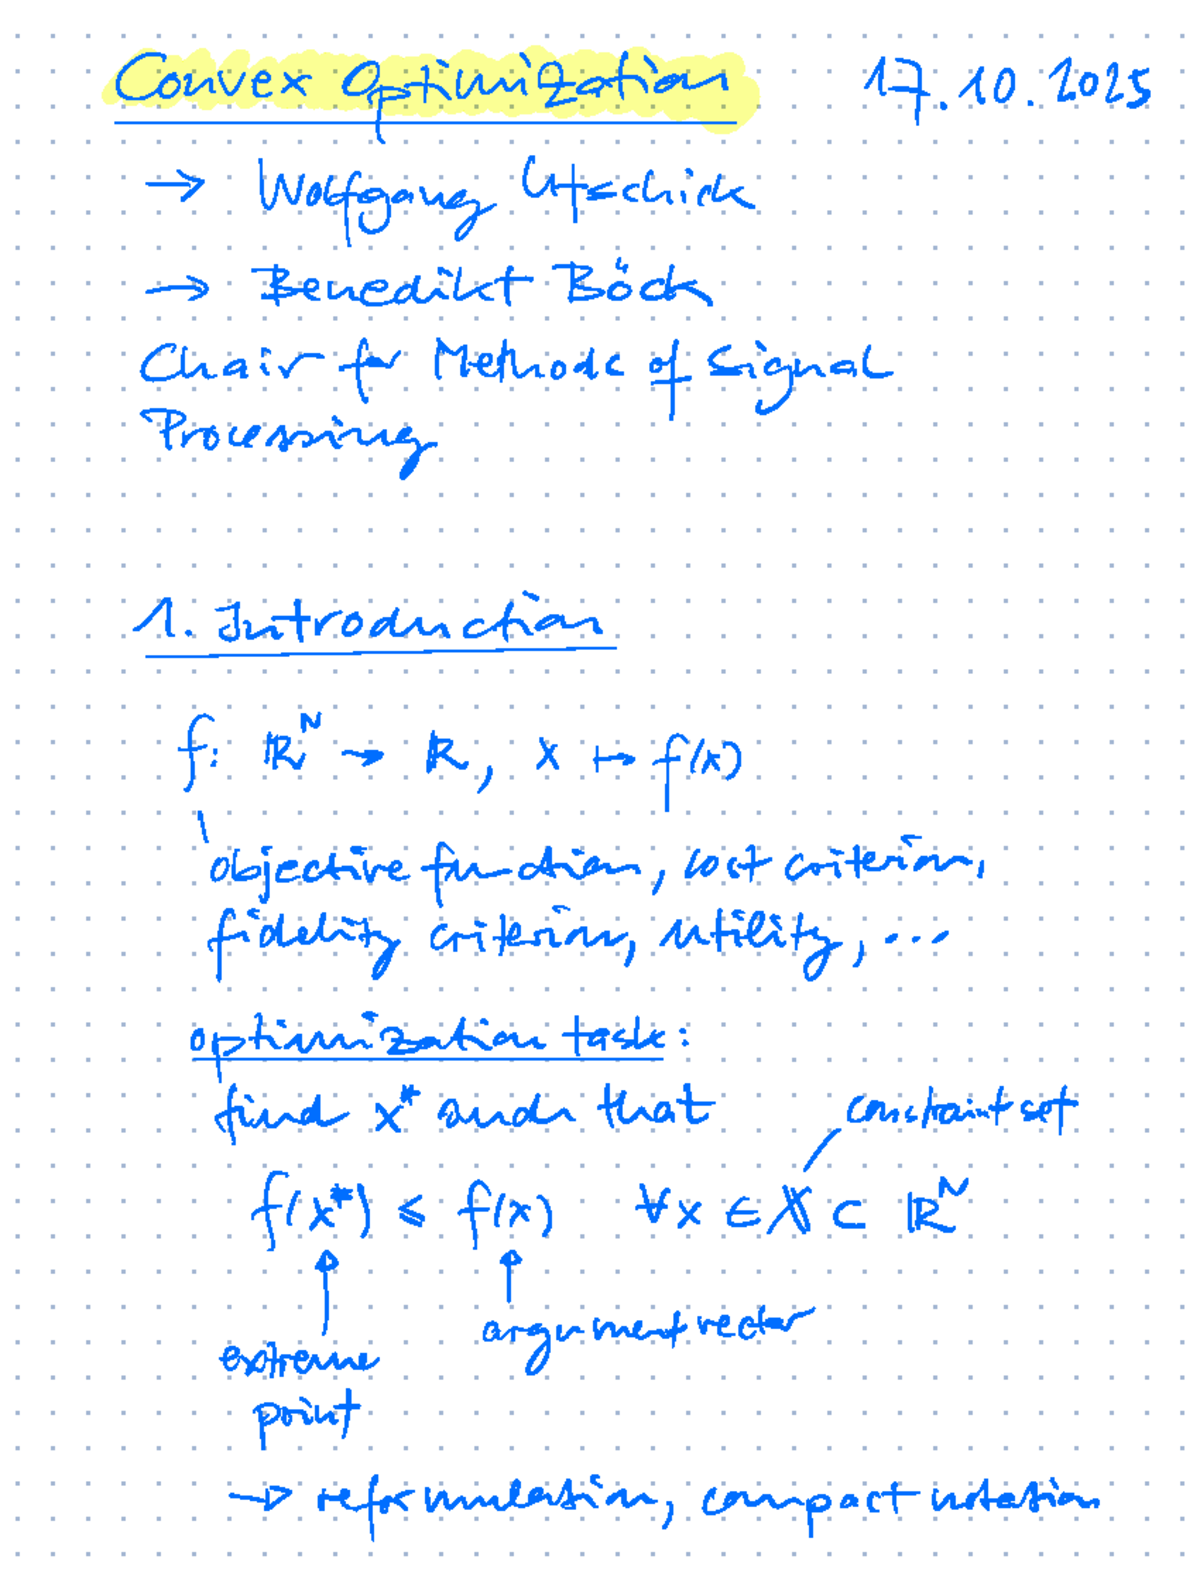 Convex Optimization 17.10.2025
→ Wolfgang Utschick
→ Benedikt Böck
Chair for Methods of Signal
Processing
1. Introduction
f: ℝᴺ → ℝ, x ↦ f(x)
objective function, cost criterion,
fidelity criterion, utility, ...
optimization task:
find x* such that
constraint set
f(x*) ≤ f(x) ∀x ∈ 𝕏 ⊂ ℝᴺ
argument vector
extreme
point
→ reformulation, compact notation